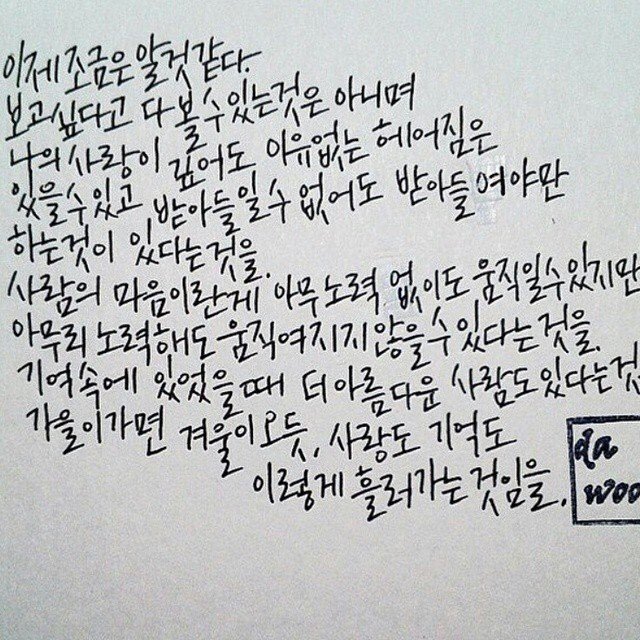 이제 조금은 알것 같다.
보고싶다고 다 볼수있는것은 아니며
나의 사랑이 깊어도 이유없는 헤어짐은
있을수있고 받아들일수 없어도 받아들여야만
하는것이 있다는것을.
사람의 마음이란게 아무노력 없이도 움직일수있지만
아무리 노력해도 움직여지지않을수있다는것을.
기억속에 있었을때 더 아름다운 사람도 있다는것
가을이가면 겨울이오듯, 사랑도 기억도
이렇게 흘러가는것임을.
da
woo